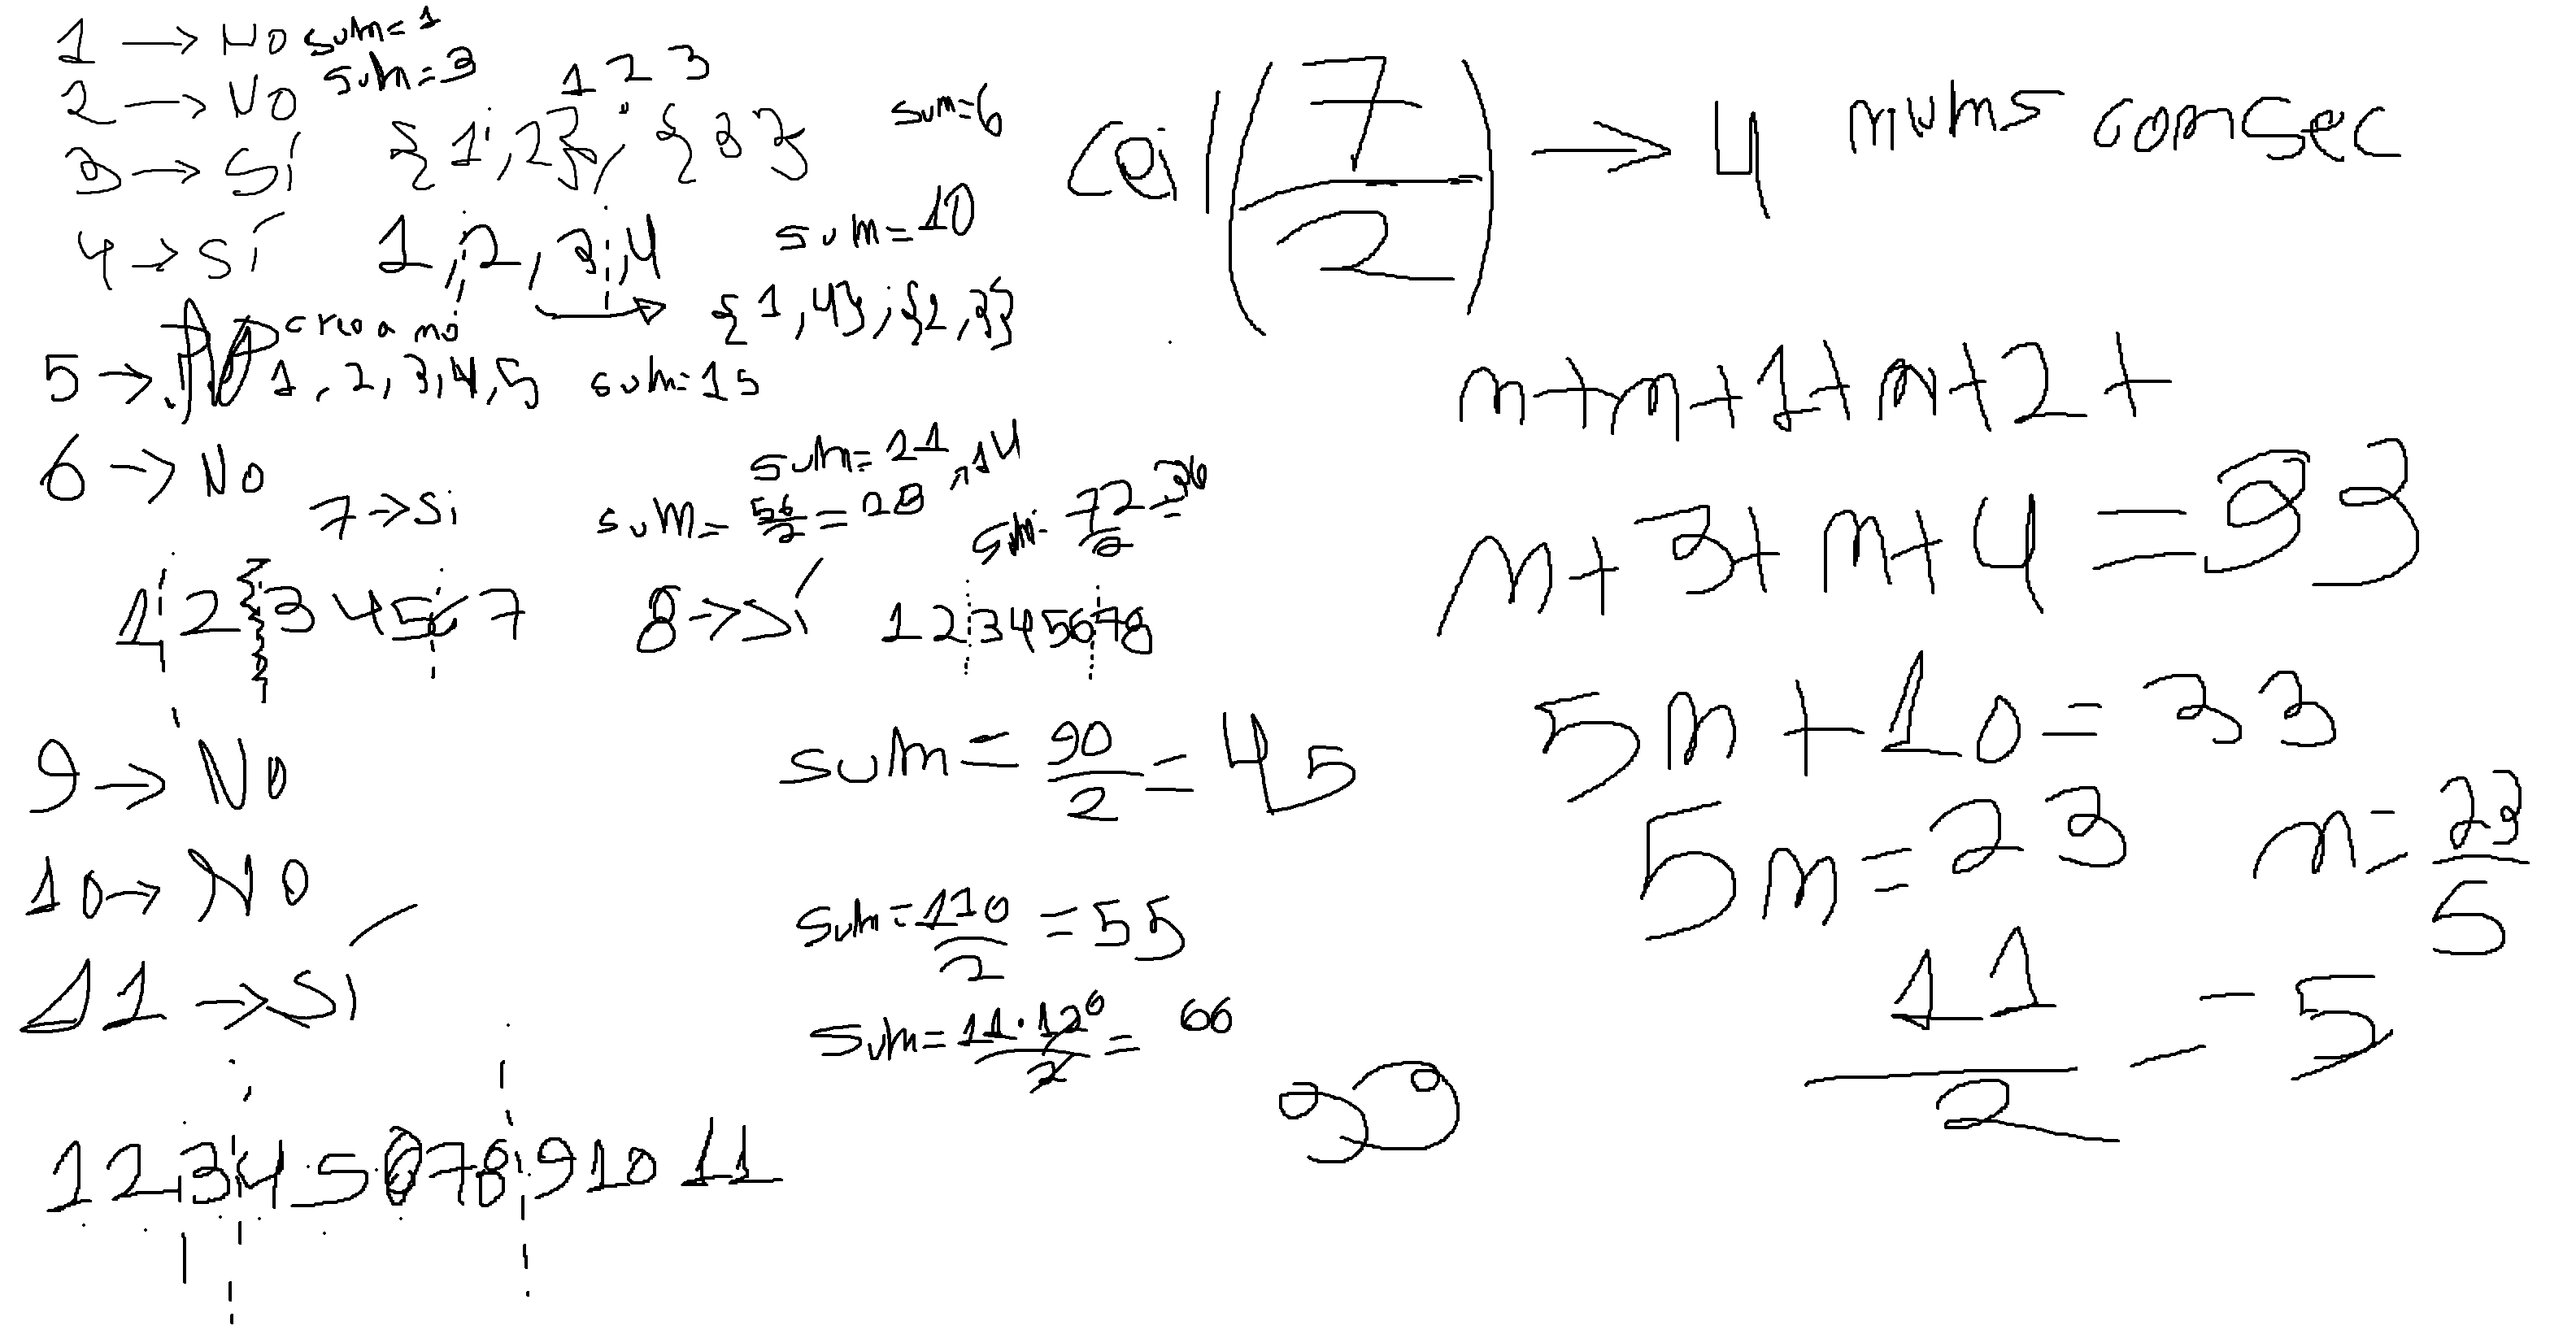 1 → NO sum=1
2 → NO sum=3
1 2 3
3 → Sí {1,2}; {3} sum=6
4 → Sí 1,2,3,4 sum=10
→ {1,4};{2,3}
creo q no
5 → NO 1,2,3,4,5 sum=15
6 → No sum=21
7 → Si sum= 56/2 = 28 → 14
1 2 3 4 5 6 7
sum= 72/2 = 36
8 → Sí 1 2 3 4 5 6 7 8
9 → No sum = 90/2 = 45
10 → NO sum = 110/2 = 55
11 → Sí sum= 11·12/2 = 66
6
1 2 3 4 5 6 7 8 9 10 11
33
ceil(7/2) → 4 nums consec
n+n+1+n+2+
n+3+n+4=33
5n+10=33
5n=23 n=23/5
11/2 = 5